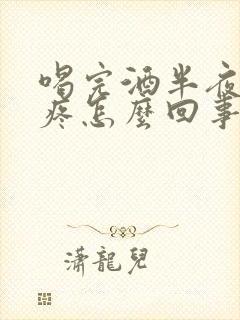 喝完酒半夜
疼怎麼回事
瀟龍兒